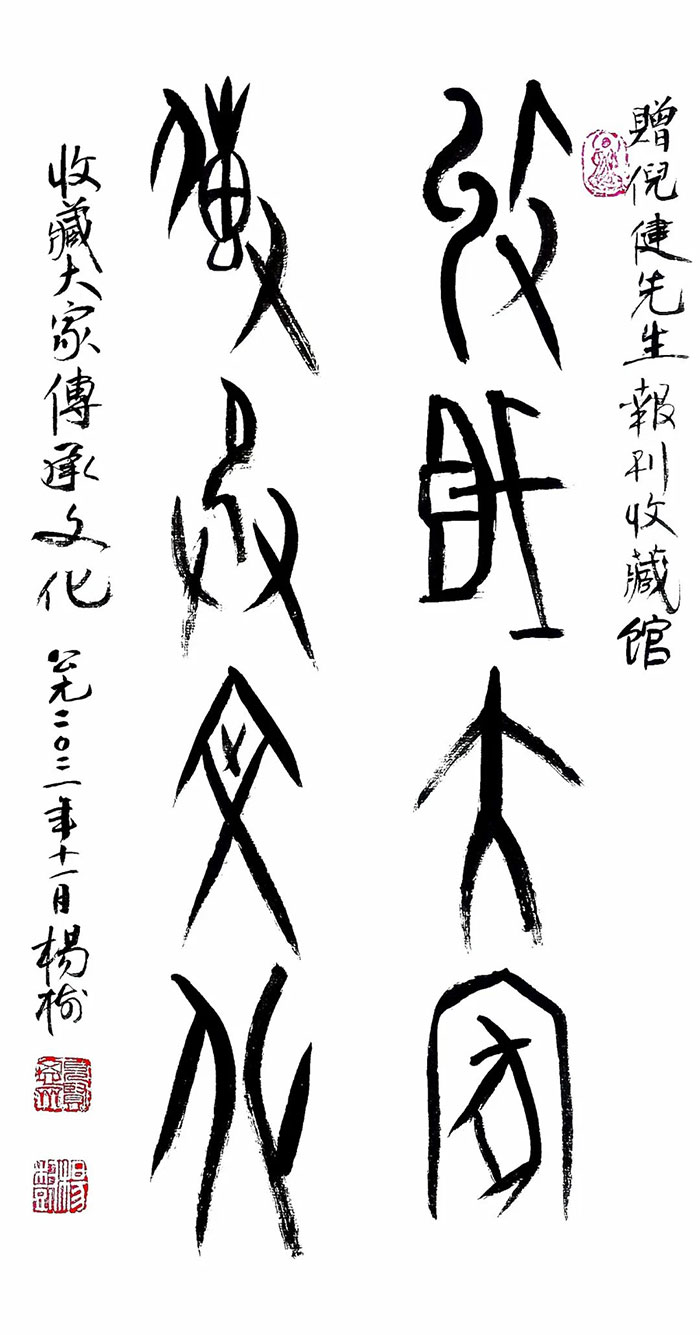 贈倪健先生報刊收藏館
收藏大家
傳承文化
收藏大家傳承文化
公元二〇二一年十一月